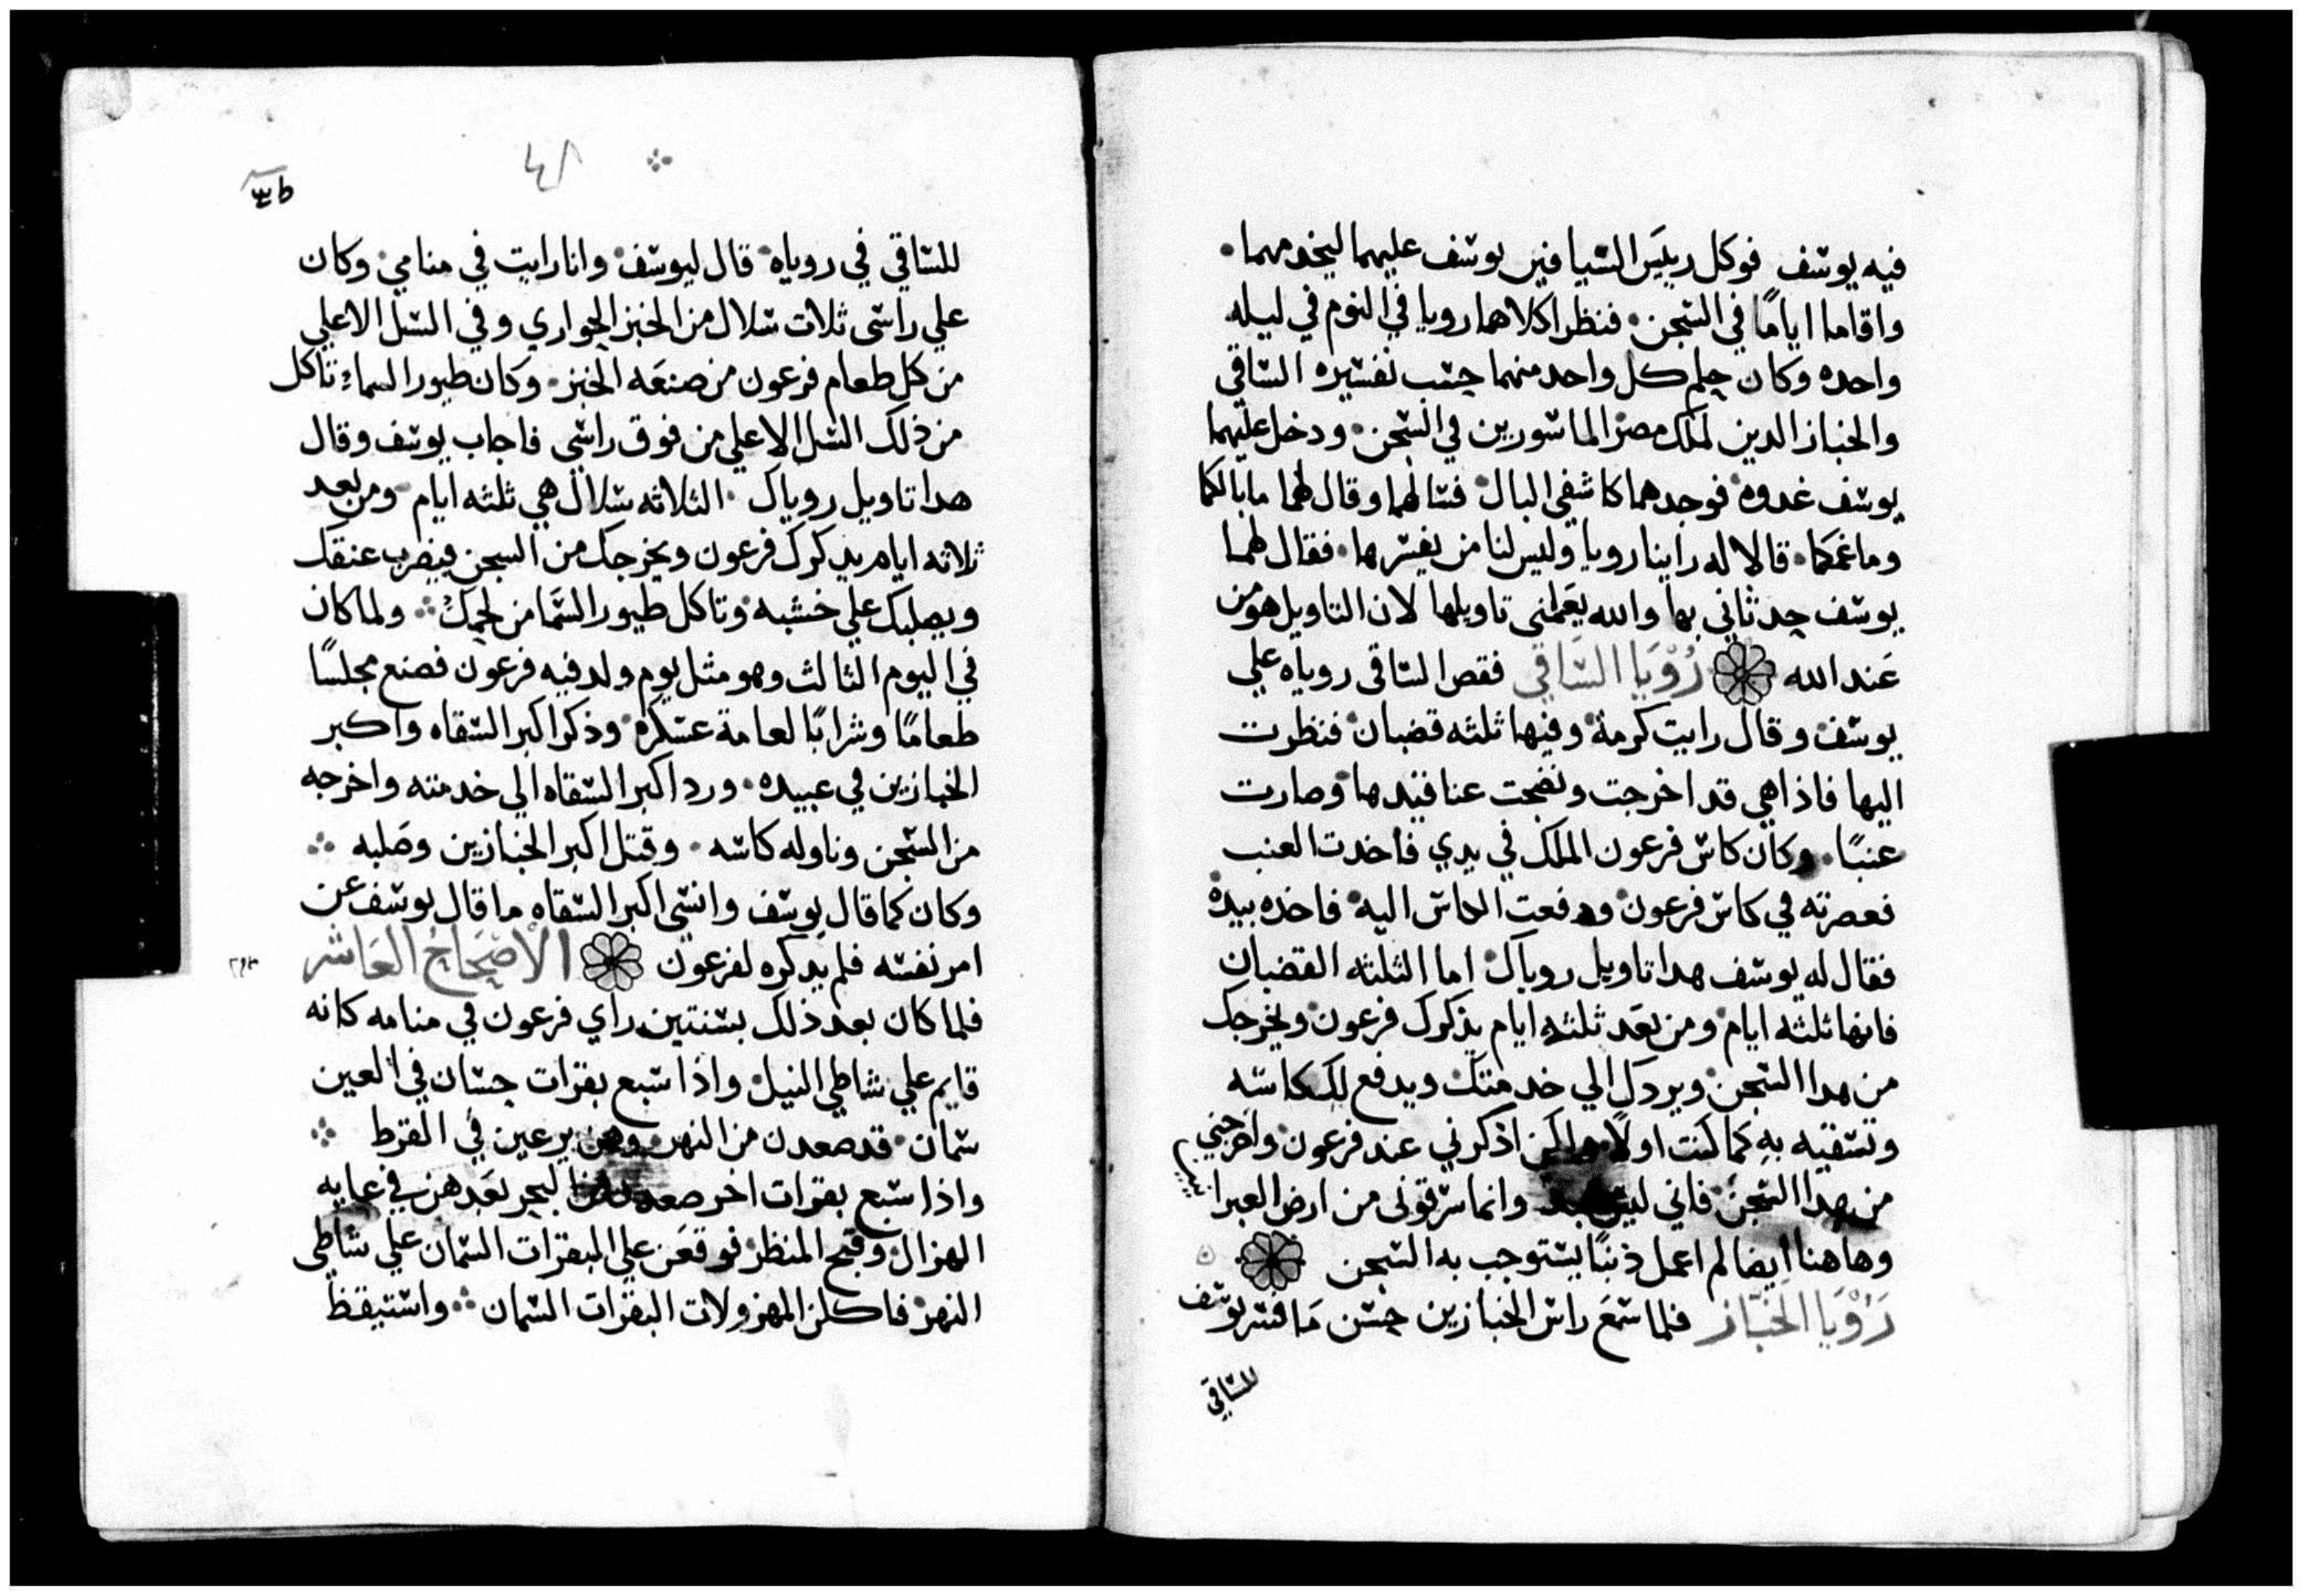 فيه يوسف فوكل رييس السيافين يوسف عليهما ليخدمهما
واقاما اياماً في السجن فنظرا كلاهما رويا في النوم في ليله
واحده وكان حلم كل واحد منهما حسب تفسيره الساقي
والخباز الدين لملك مصر الماسورين في السجن ودخل عليهما
يوسف غدوه فوجدهما كاشفي البال فسالهما وقال لهما ما بالكما
وما غمكما قالا له راينا رويا وليس لنا من يفسرها فقال لهما
يوسف حدثاني بها والله يعلمني تاويلها لان التاويل هو من
عند الله رُؤْيَا السَّاقي فقص الساقي روياه علي
يوسف وقال رايت كرمة وفيها ثلثه قضبان فنظرت
اليها فاذا هي قد اخرجت ونضجت عناقيدها وصارت
عنبًا وكان كاس فرعون الملك في يدي فاخدت العنب
فعصرته في كاس فرعون ودفعت الكاس اليه فاخده بيده
فقال له يوسف هدا تاويل روياك اما الثلثه القضبان
فانها ثلثه ايام ومن بعد ثلثه ايام يذكرك فرعون ويخرجك
من هدا السجن ويردك الي خدمتك ويدفع لك كاسه
وتسقيه به كما كنت اولًا ولكن اذكرني عند فرعون واخرجني
من هدا السجن فاني لست وانما سرقوني من ارض العبرانيين
وهاهنا ايضا لم اعمل ذنبًا يستوجب به السجن
رُؤْيَا الخبَّاز فلما سمع راس الخبازين حسن ما فسر يوسف
للساقي
٤٨
للساقي في روياه قال ليوسف وانا رايت في منامي وكان
علي راسي ثلات سلال من الخبز الحواري وفي السل الاعلي
من كل طعام فرعون من صنعه الخبز وكان طيور السماء تاكل
من ذلك السل الاعلي من فوق راسي فاجاب يوسف وقال
هدا تاويل روياك الثلاثه سلال هي ثلثه ايام ومن بعد
ثلاثه ايام يدكرك فرعون ويخرجك من السجن فيضرب عنقك
ويصلبك علي خشبه وتاكل طيور السما من لحمك ولما كان
في اليوم الثالث وهو مثل يوم ولد فيه فرعون فصنع مجلسًا
طعامًا وشرابًا لعامة عسكره وذكر اكبر السقاه واكبر
الخبازين في عبيده ورد اكبر السقاه الي خدمته واخرجه
من السجن وناوله كاسه وقتل اكبر الخبازين وصلبه
وكان كما قال يوسف وانسي اكبر السقاه ما قال يوسف عن
امر نفسه فلم يدكره لفرعون الاصْحَاحُ العَاشر
فلما كان بعد ذلك بسنتين راي فرعون في منامه كانه
قايم علي شاطي النيل واذا سبع بقرات حسان في العين
سمان قد صعدن من النهر وهن يرعين في القرط
واذا سبع بقرات اخر صعدن من البحر بعدهن في غايه
الهزال وقبح المنظر فوقعن علي البقرات السمان علي شاطي
النهر فاكلن المهزولات البقرات السمان واستيقظ